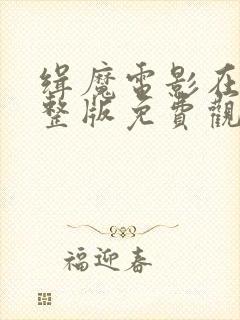 缉魔電影在
整版免費觀
福迎春